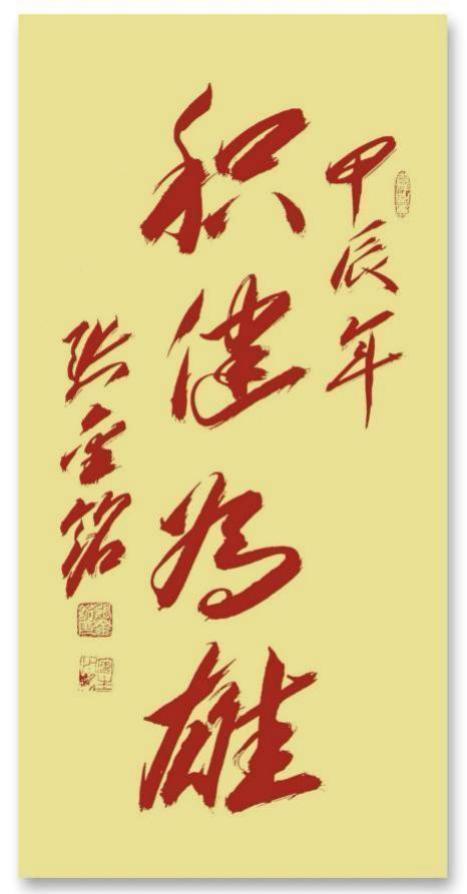 甲辰年
积健为雄
张金铭